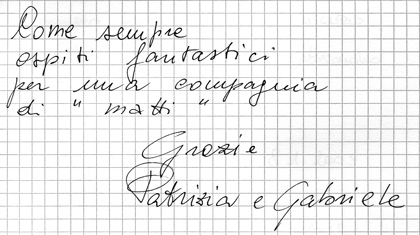 Come sempre
ospiti fantastici
per una compagnia
di " matti "
Grazie
Patrizia e Gabriele